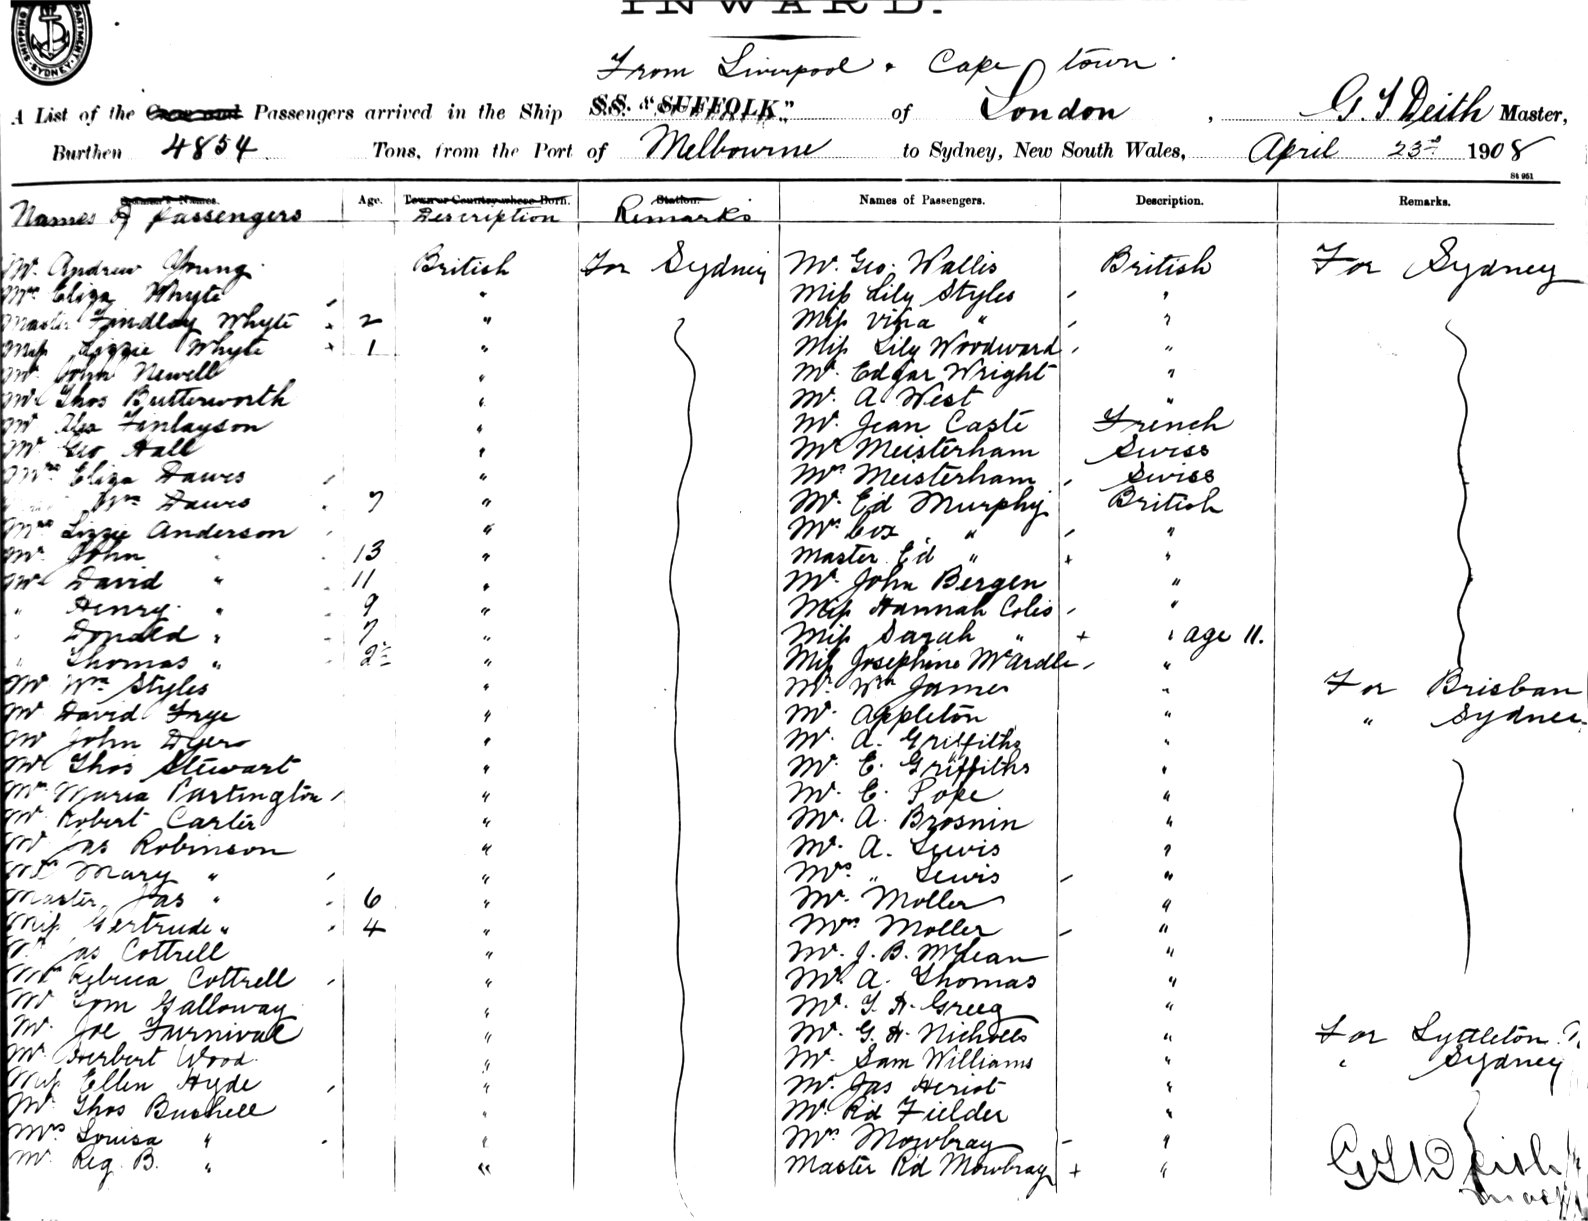 INWARD.
SHIPPING DEPARTMENT SYDNEY
From Liverpool & Cape town.
A List of the Crew and Passengers arrived in the Ship S.S. "SUFFOLK" of London, G. S. Deith Master,
Burthen 4854 Tons, from the Port of Melbourne to Sydney, New South Wales, April 23rd 1908
84 951
Names of Passengers Age. Town or Country where Born. Description Station. Remarks Names of Passengers. Description. Remarks.
Mr. Andrew Young British For Sydney
Mrs Eliza Whyte "
Master Findlay Whyte 2 "
Miss Lizzie Whyte 1 "
Mr. John Newell "
Mr Thos Butterworth "
Mr Alex Finlayson "
Mr Geo Hall "
Mrs Eliza Dawes "
Wm Dawes 7 "
Mrs Lizzie Anderson "
Mr. John " 13 "
Mr David " 11 "
" Henry " 9 "
" Donald " 7 "
" Thomas " 2½ "
Mr Wm Styles "
Mr David Frye "
Mr John Dyer "
Mr Thos Stewart "
Mrs Maria Partington "
Mr Robert Carter "
Mr Jas Robinson "
Mrs Mary " "
Master Jas " 6 "
Miss Gertrude " 4 "
Mr Jas Cottrell "
Mrs Rebecca Cottrell "
Mr Tom Galloway "
Mr. Joe Furnival "
Mr Herbert Wood "
Miss Ellen Hyde "
Mr Thos Bushell "
Mrs Louisa " "
Mr. Reg. B. " "
Mr. Geo. Wallis British For Sydney
Miss Lily Styles "
Miss Vina " "
Miss Lily Woodward "
Mr. Edgar Wright "
Mr. A West "
Mr. Jean Caste French
Mr Meisterham Swiss
Mrs Meisterham Swiss
Mr. Ed Murphy British
Mrs Cox " "
Master Ed " "
Mr. John Bergen "
Miss Hannah Coles "
Miss Sarah " + " age 11.
Miss Josephine McArdle "
Mr. Wm James " For Brisban
Mr. Appleton " " Sydney
Mr. A. Griffiths "
Mr. E. Griffiths "
Mr. E. Pope "
Mr. A. Brosnin "
Mr. A. Lewis "
Mrs. " Lewis "
Mr. Moller "
Mrs Moller "
Mr. J. B. McLean "
Mr. A. Thomas "
Mr. T. H. Greeg "
Mr. G. H. Nicholls " For Lyttleton
Mr. Sam Williams " " Sydney
Mr. Jas Heriot "
Mr. Rd Fielder "
Mrs Mowbray "
Master Rd Mowbray + "
G S Deith